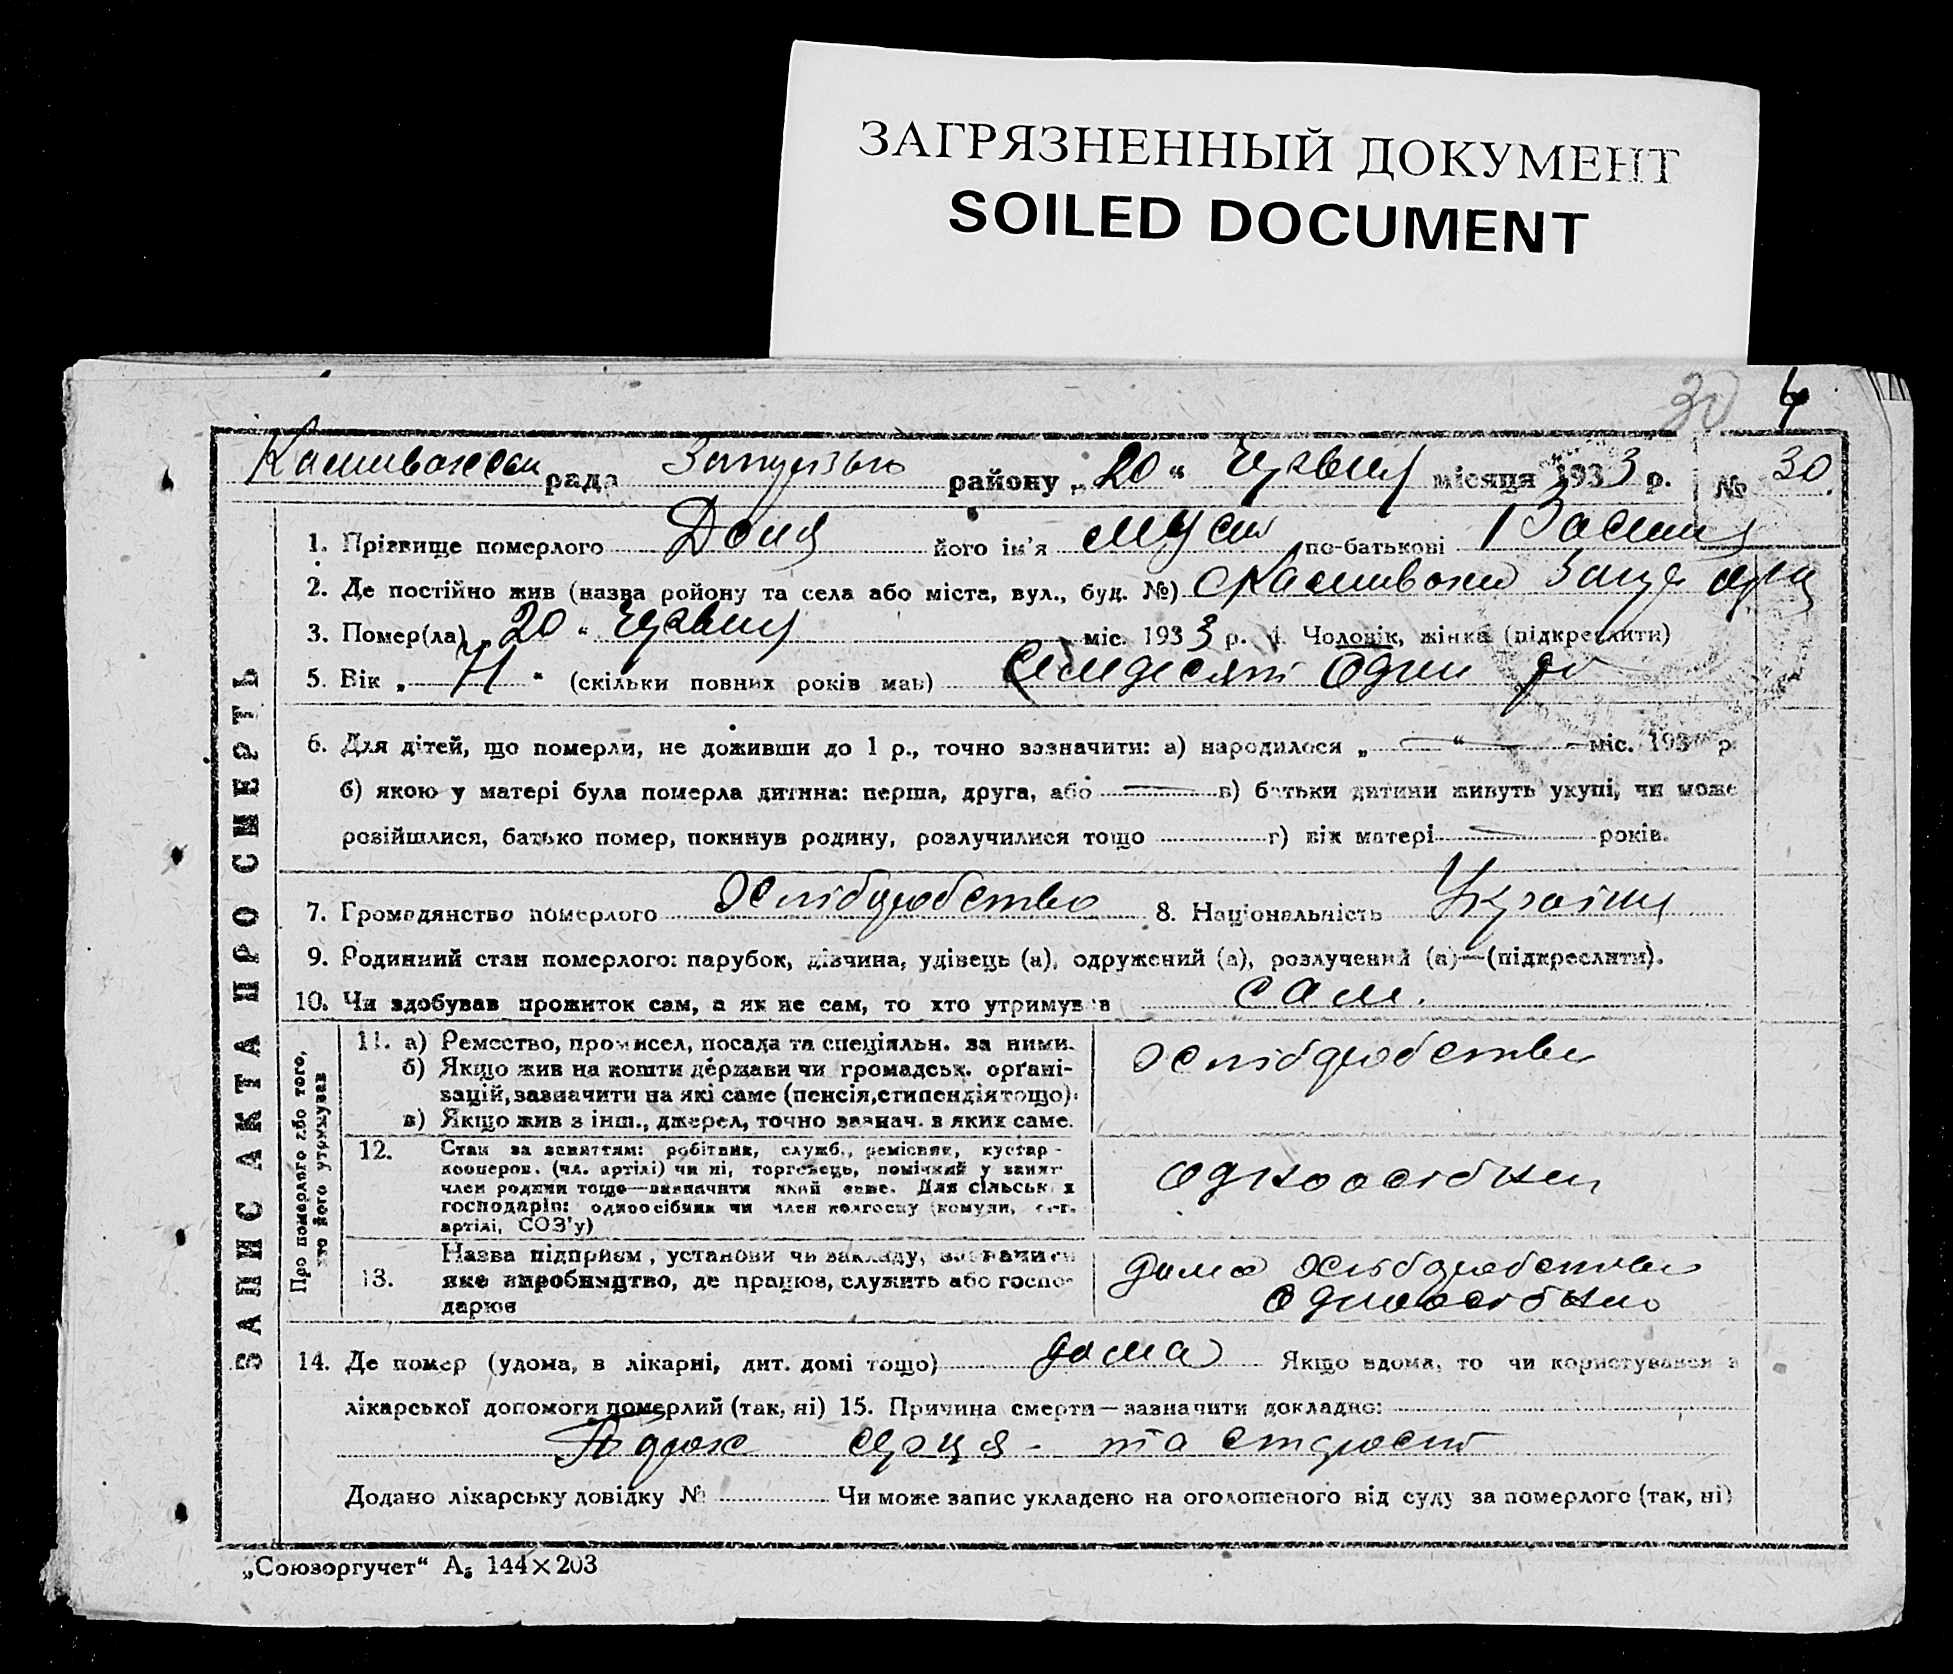 ЗАГРЯЗНЕННЫЙ ДОКУМЕНТ
SOILED DOCUMENT
30 4
рада району „20“ місяця 1933 р. № 30
1. Прізвище померлого його ім'я по-батькові
2. Де постійно жив (назва району та села або міста, вул., буд. №)
3. Помер(ла) „20“ міс. 1933 р. 4. Чоловік, жінка (підкреслити)
5. Вік „71“ (скільки повних років мав) сімдесят один
6. Для дітей, що померли, не доживши до 1 р., точно зазначити: а) народилося „ “ міс. 193 р.
б) якою у матері була померла дитина: перша, друга, або в) батьки дитини живуть укупі, чи може
розійшлися, батько помер, покинув родину, розлучилися тощо г) вік матері років.
7. Громадянство померлого хлібдробство 8. Національність
9. Родинний стан померлого: парубок, дівчина, удівець (а), одружений (а), розлучений (а)—(підкреслити).
10. Чи здобував прожиток сам, а як не сам, то хто утримував сам.
ЗАПИС АКТА ПРО СМЕРТЬ
Про померлого або того,
хто його утримував
11. а) Ремество, промисел, посада та спеціяльн. за ними.
б) Якщо жив на кошти держави чи громадськ. орґані-
зацій, зазначити на які саме (пенсія, стипендія тощо).
в) Якщо жив з інш., джерел, точно зазнач. в яких саме.
хлібдробство
12. Стан за заняттям: робітник, служб., ремісник, кустар-
кооперов. (чл. артілі) чи ні, торговець, помічний у занят.
член родини тощо—зазначити який саме. Для сільськ. х
господарів: одноосібник чи член колгоспу (комуни, с.-г.
артілі, СОЗ'у)
13. Назва підприєм, установи чи закладу, зазначити
яке виробництво, де працює, служить або госпо-
дарює
дома хлібдробство
14. Де помер (удома, в лікарні, дит. домі тощо) дома Якщо вдома, то чи користувався з
лікарської допомоги померлий (так, ні) 15. Причина смерти—зазначити докладно:
серця - та старость
Додано лікарську довідку № Чи може запис укладено на оголошеного від суду за померлого (так, ні)
„Союзоргучет“ А₅ 144×203